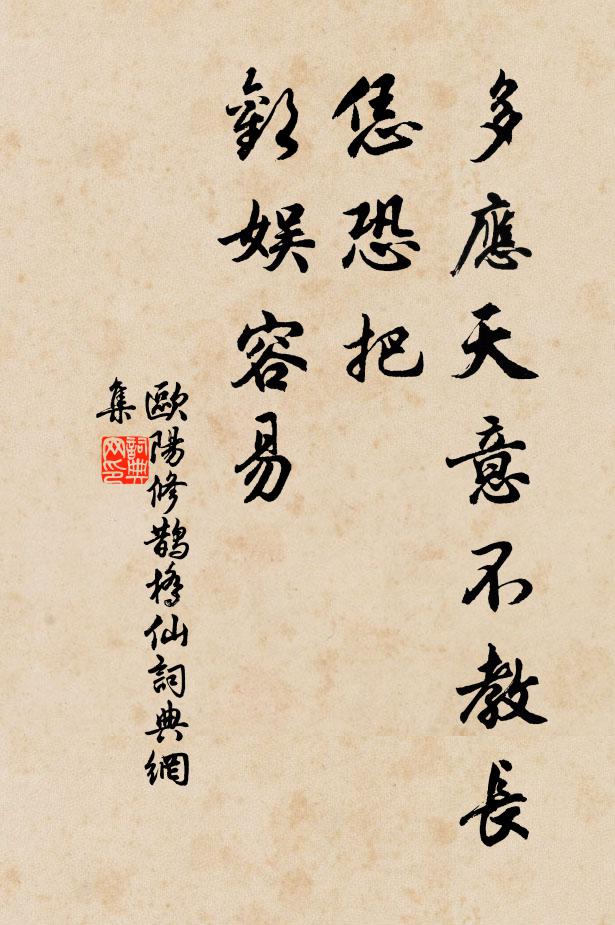 多應天意不教長
恁恐把
歡娛容易
歐陽修鵲橋仙詞典網
集
詞典
网印